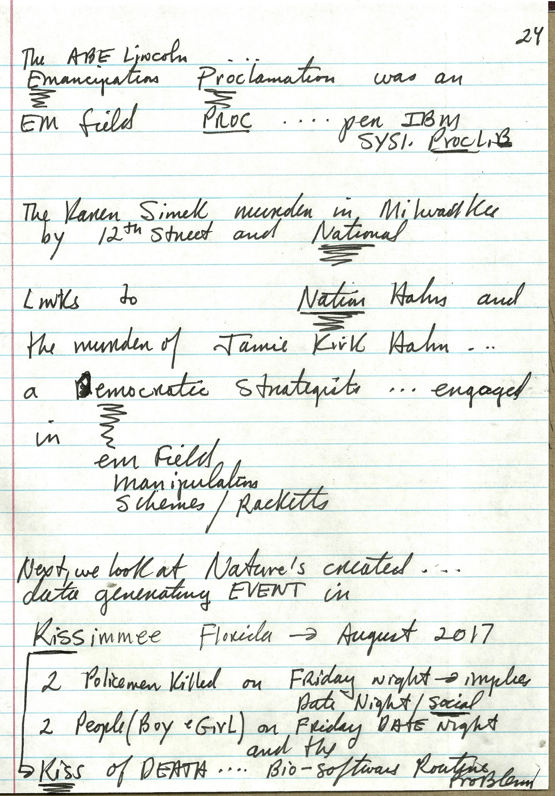 24
The ABE Lincoln ....
Emancipations Proclamation was an
EM field PROC .... per IBM
SYS1. PROCLIB
The Karen Simek murder in Milwaukee
by 12th Street and National
Links to Nation Hahn and
the murder of Jamie Kirk Hahn ...
a Democratic Strategists ... engaged
in
em Field
manipulation
Schemes / Racketts
Next, we look at Nature's created ....
data generating EVENT in
Kissimmee Florida → August 2017
2 Policemen Killed on Friday night → implies
Date Night / social
2 People (Boy & Girl) on Friday DATE Night
and the
→ Kiss of DEATH .... Bio-software Routine
Problem